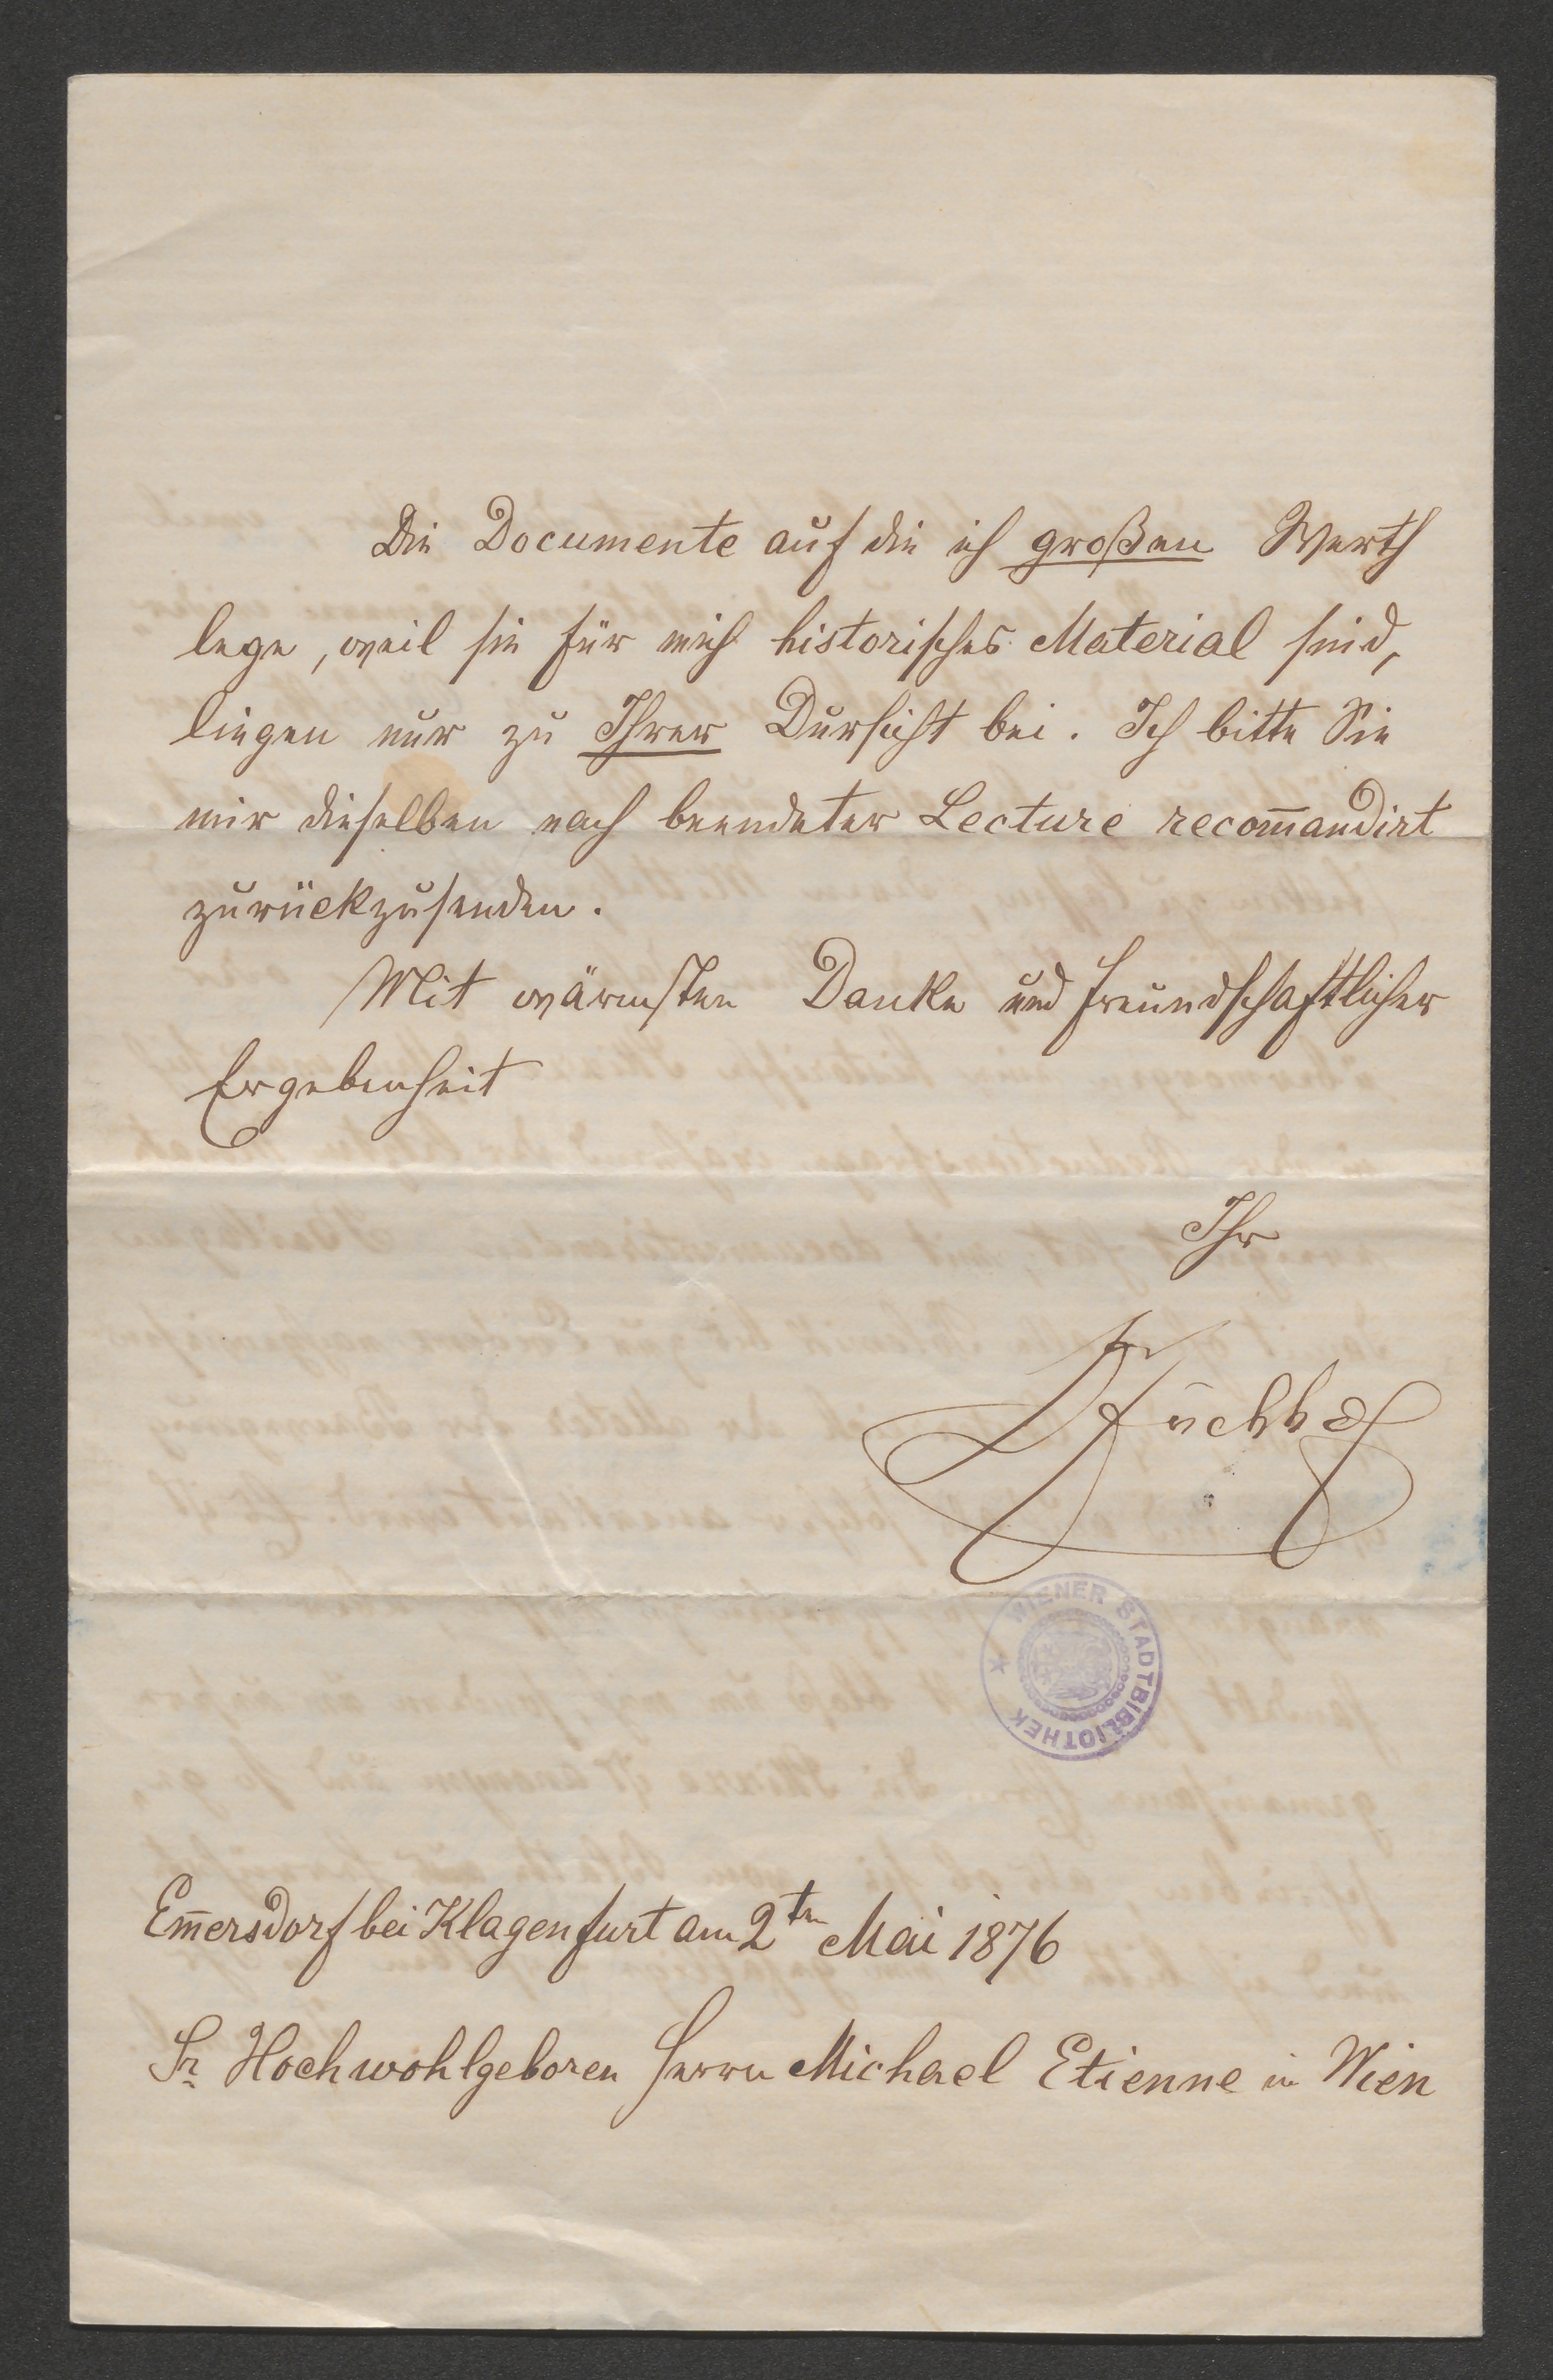 Die Documente auf die ich großen Werth
lege, weil sie für mich historisches Material sind,
liegen nur zu Ihrer Dursicht bei. Ich bitte Sie
mir dieselben nach beendeter Lecture recom̄andirt
zurückzusenden.
Mit wärmsten Danke und freundschaftlicher
Ergebenheit
Ihr
WIENER STADTBIBLIOTHEK
Em̄ersdorf bei Klagenfurt am 2ten Mai 1876
Sr Hochwohlgeboren Herrn Michael Etienne in Wien